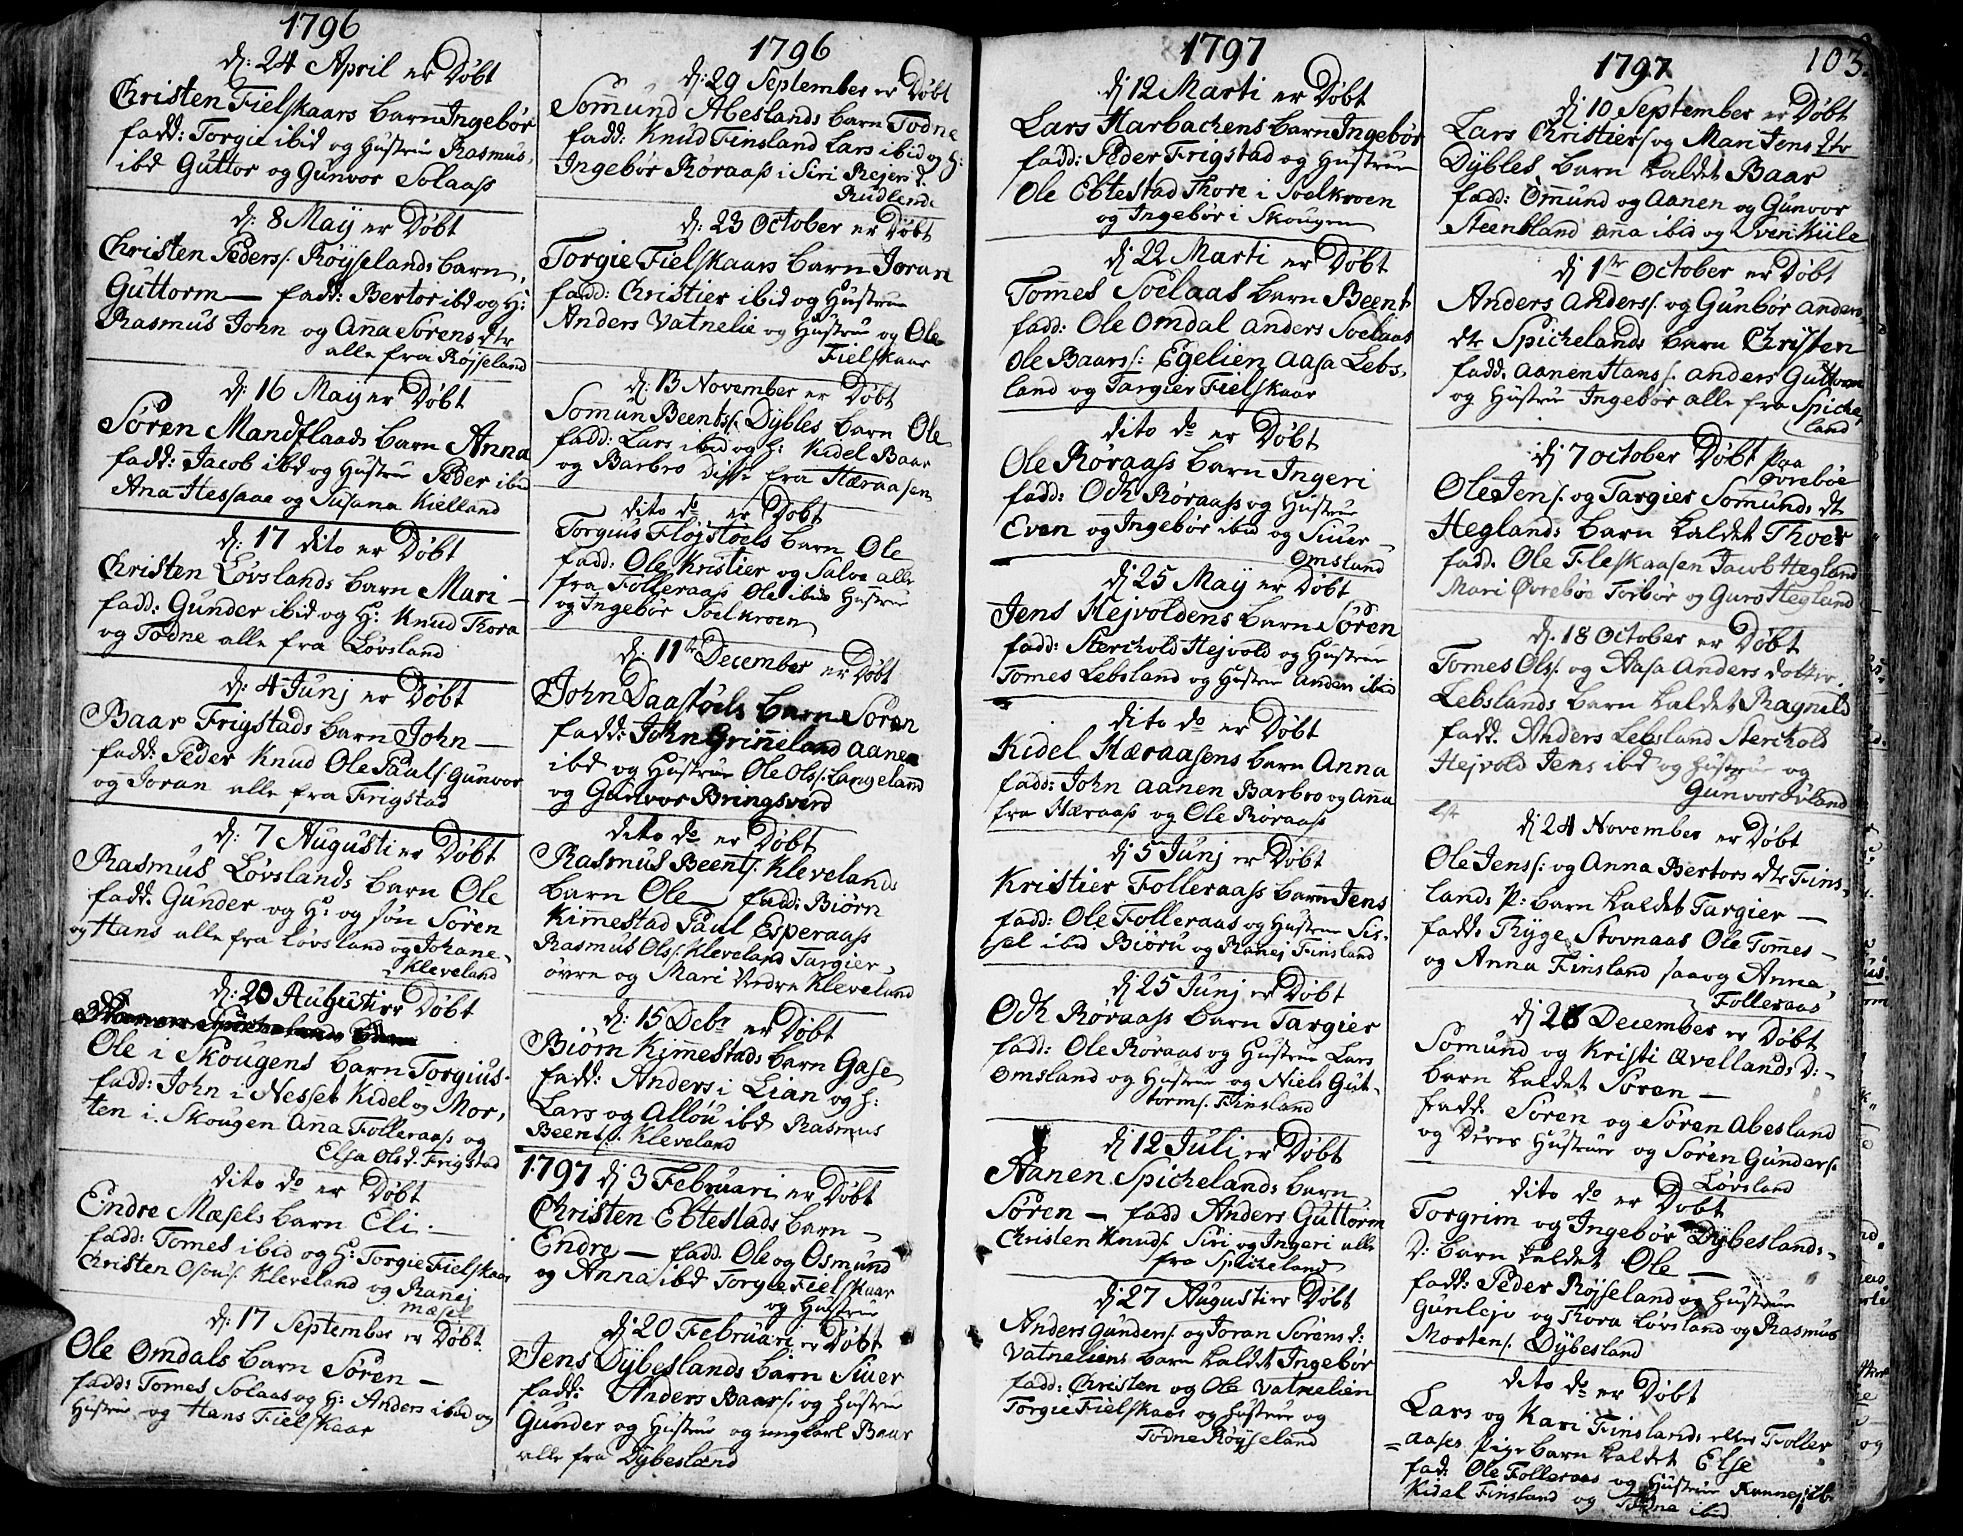 1796
dj: 24 April er Døbt
Christen Fielskaars barn Ingebør
fadd: Torgie ibid og Hustrue Rasmus
ibd Guttor og Gunvor Solaass
dj: 8 Maij er Døbt
Christen Peders: Røyselands barn
Guttorm — fadd: Bertor ibd og H:
Rasmus John og Anna Sørens dtr
alle fra Røjseland
dj: 16 Maij er Døbt
Søren Mandflaads barn Anna
fadd: Jacob ibd og Hustrue Peder ibid
Ana Hessaae og Susana Kielland
dj: 17 dito er Døbt
Christen Løvslands barn Mari —
fadd: Gunder ibid og H: Knud Thora
og Todne alle fra Løvsland
dj: 4 Junj er Døbt
Baar Frigstads barn John —
fadd: Peder Knud Ole Pauls: Gunvor
og Joran alle fra Frigstad
dj: 7 Augusti er Døbt
Rasmus Løvslands barn Ole
fadd: Gunder og H: og søn Søren
og Hans alle fra Løvsland og Johane
Kleveland
dj: 20 Augusti er Døbt
Ole i Skougens barn Torgius
fadd: John i Nesset Kidel og Mor,
ten i Skougen Anna Folleraass og
Elsa Ols d. Frigstad
dito do er Døbt
Endre Mæsels barn Eli —
fadd: Tomes ibid og H: Torgie Fielskaar
Christen Osous: Kleveland og Ranej
Mæsel
dj: 17 September er Døbt
Ole Omdals barn Søren —
fadd: Tomes Solaas og H: Anders ibid og
Hustrue og Hans Fielskaar
1796
dj: 29 September er Døbt
Somund Abeslands barn Todne
fadd: Knud Finsland Lars ibid og H:
Ingebør Røraass i Siri Rejers d.
Rudland
dj: 23 October er Døbt
Torgie Fielskaars barn Joran
fadd: Christier ibid og Hustrue
Anders Vatnelie og Hustrue og Ole
Fielskaar
dj: 13 November er Døbt
Somun Beents: Dybles barn Ole
fadd: Lars ibid og H: Kidel Baar
og Barbro disse fra Hæraasen
dito do er Døbt
Torgius Fløjstøels barn Ole
fadd: Ole Kristier og Salve alle
fra Folleraass Ole ibids Hustrue
og Ingebør Soelkroen
dj: 11te December er Døbt
John Daastøels barn Søren
fadd: John Grinneland Aanen
ibd og Hustrue Ole Ols: Langeland
og Gunvor Bringsverd
dito do er Døbt
Rasmus Beents: Klevelands
barn Ole — fadd: Biørn
Kimestad Paul Esperaass
Rasmus Ols: Kleveland Targier
øvre og Mari Nedre Kleveland
dj: 15 Debr er Døbt
Biørn Kimmestads barn Gase
fadd: Anders i Lian og H:
Lars og Alløu ibd Rasmus
Beents: Kleveland
1797 dj 3 Februari er Døbt
Christen Ebtestads barn —
Endre — fadd: Ole og Osmund
og Anna ibd Torgie Fielskaar
og Hustrue
dj 20 Februari er Døbt
Jens Dybeslands barn Siuer
fadd: Anders Baars: og Hustrue
Gunder og Hustrue og ungkarl Baar
alle fra Dybesland
1797
dj 12 Marti er Døbt
Lars Harbachens barn Ingebør
fadd: Peder Frigstad og Hustrue
Ole Ebtestad Thore i Soelkroen
og Ingebør i Skougen
dj 22 Marti er Døbt
Tomes Soelaas barn Beent
fadd: Ole Omdal Anders Soelaas
Ole Baars: Egelien Aasa Lebs,
land og Targier Fielskaar
dito do er Døbt
Ole Røraass barn Ingeri
fadd: Och Røraass og Hustrue
Even og Ingebør ibid og Siuer
Omsland
dj 25 Maij er Døbt
Jens Hejvoldens barn Søren
fadd: Sterchold Hejvold og Hustrue
Tomes Lebsland og Hustrue Anders ibid
dito do er Døbt
Kidel Hæraasens barn Anna
fadd: John Aanen Barbro og Anna
fra Hæraass og Ole Røraass
dj 5 Junj er Døbt
Kristier Folleraass barn Jens
fadd: Ole Folleraas og Hustrue Sis-
sel ibid Biøru og Ranej Finsland
dj 25 Junj er Døbt
Och Røraass barn Targier
fadd: Ole Røraas og Hustrue Lars
Omsland og Hustrue og Niels Gut-
torms: Finsland
dj 12 Juli er Døbt
Aanen Spichelands barn
Søren — fadd Anders Guttorm
Christen Knuds: Siri og Ingeri alle
fra Spicheland
dj 27 Augusti er Døbt
Anders Gunders: og Joran Sørens d:
Vatneliens barn kaldet Ingebør
fadd: Christen og Ole Vatnelien
Torgie Fielskaar og Hustrue og
Todne Røysseland
1797
103
dj 10 September er Døbt
Lars Christiers: og Mari Jens dtr
Dybles barn kaldet Baar
fadd: Omund og Aanen og Gunvor
Steensland Ana ibid og Sven Kiile
dj 1te October er Døbt
Anders Anders: og Gunbør Anders
dtr Spichelands barn Christen
fadd: Aanen Hans: Anders Guttorm
og Hustrue Ingebør alle fra Spiche,
land
dj 7 October Døbt paa
Øvrebøe
Ole Jens: og Targier Somunds dt
Heglands barn kaldet Thoer
fadd. Ole Fleskaasen Jacob Hegland
Mari Øvrebøe Torbør og Guro Hegland
dj. 18 October er Døbt
Tomes Ols: og Aasa Anders dotter
Lebslands barn kaldet Ragnild
fadd. Anders Lebsland Sterchold
Hejvold Jens ibd og Hustrue og
Gunvor Ivland
dj 24 November er Døbt
Ole Jens: og Anna Bertors dtr Fins,
lands P: barn kaldet Targier —
fadd. Thyge Stovnaas Ole Tomes —
og Anna Finsland saavog Anna
Folleraas
dj 26 December er Døbt
Somund og Kristi Avellands D: —
barn kaldet Søren —
fadd. Søren og Søren Abesland
og Deres Hustruer og Søren Gunders:
Løvsland
dito do er Døbt
Torgrim og Ingebør Dybeslands
D: barn kaldet Ole —
fadd: Peder Røysseland og Hustrue
Gunlejv og Thora Løvsland og Rasmus
Mortens: Dybesland
dito do er Døbt
Lars og Kari Finslands eller Foller
=aases Pige barn kaldet Else
fad: Ole Folleraas og Hustrue Rannej ib:
Kidel Finsland og Todne ibid